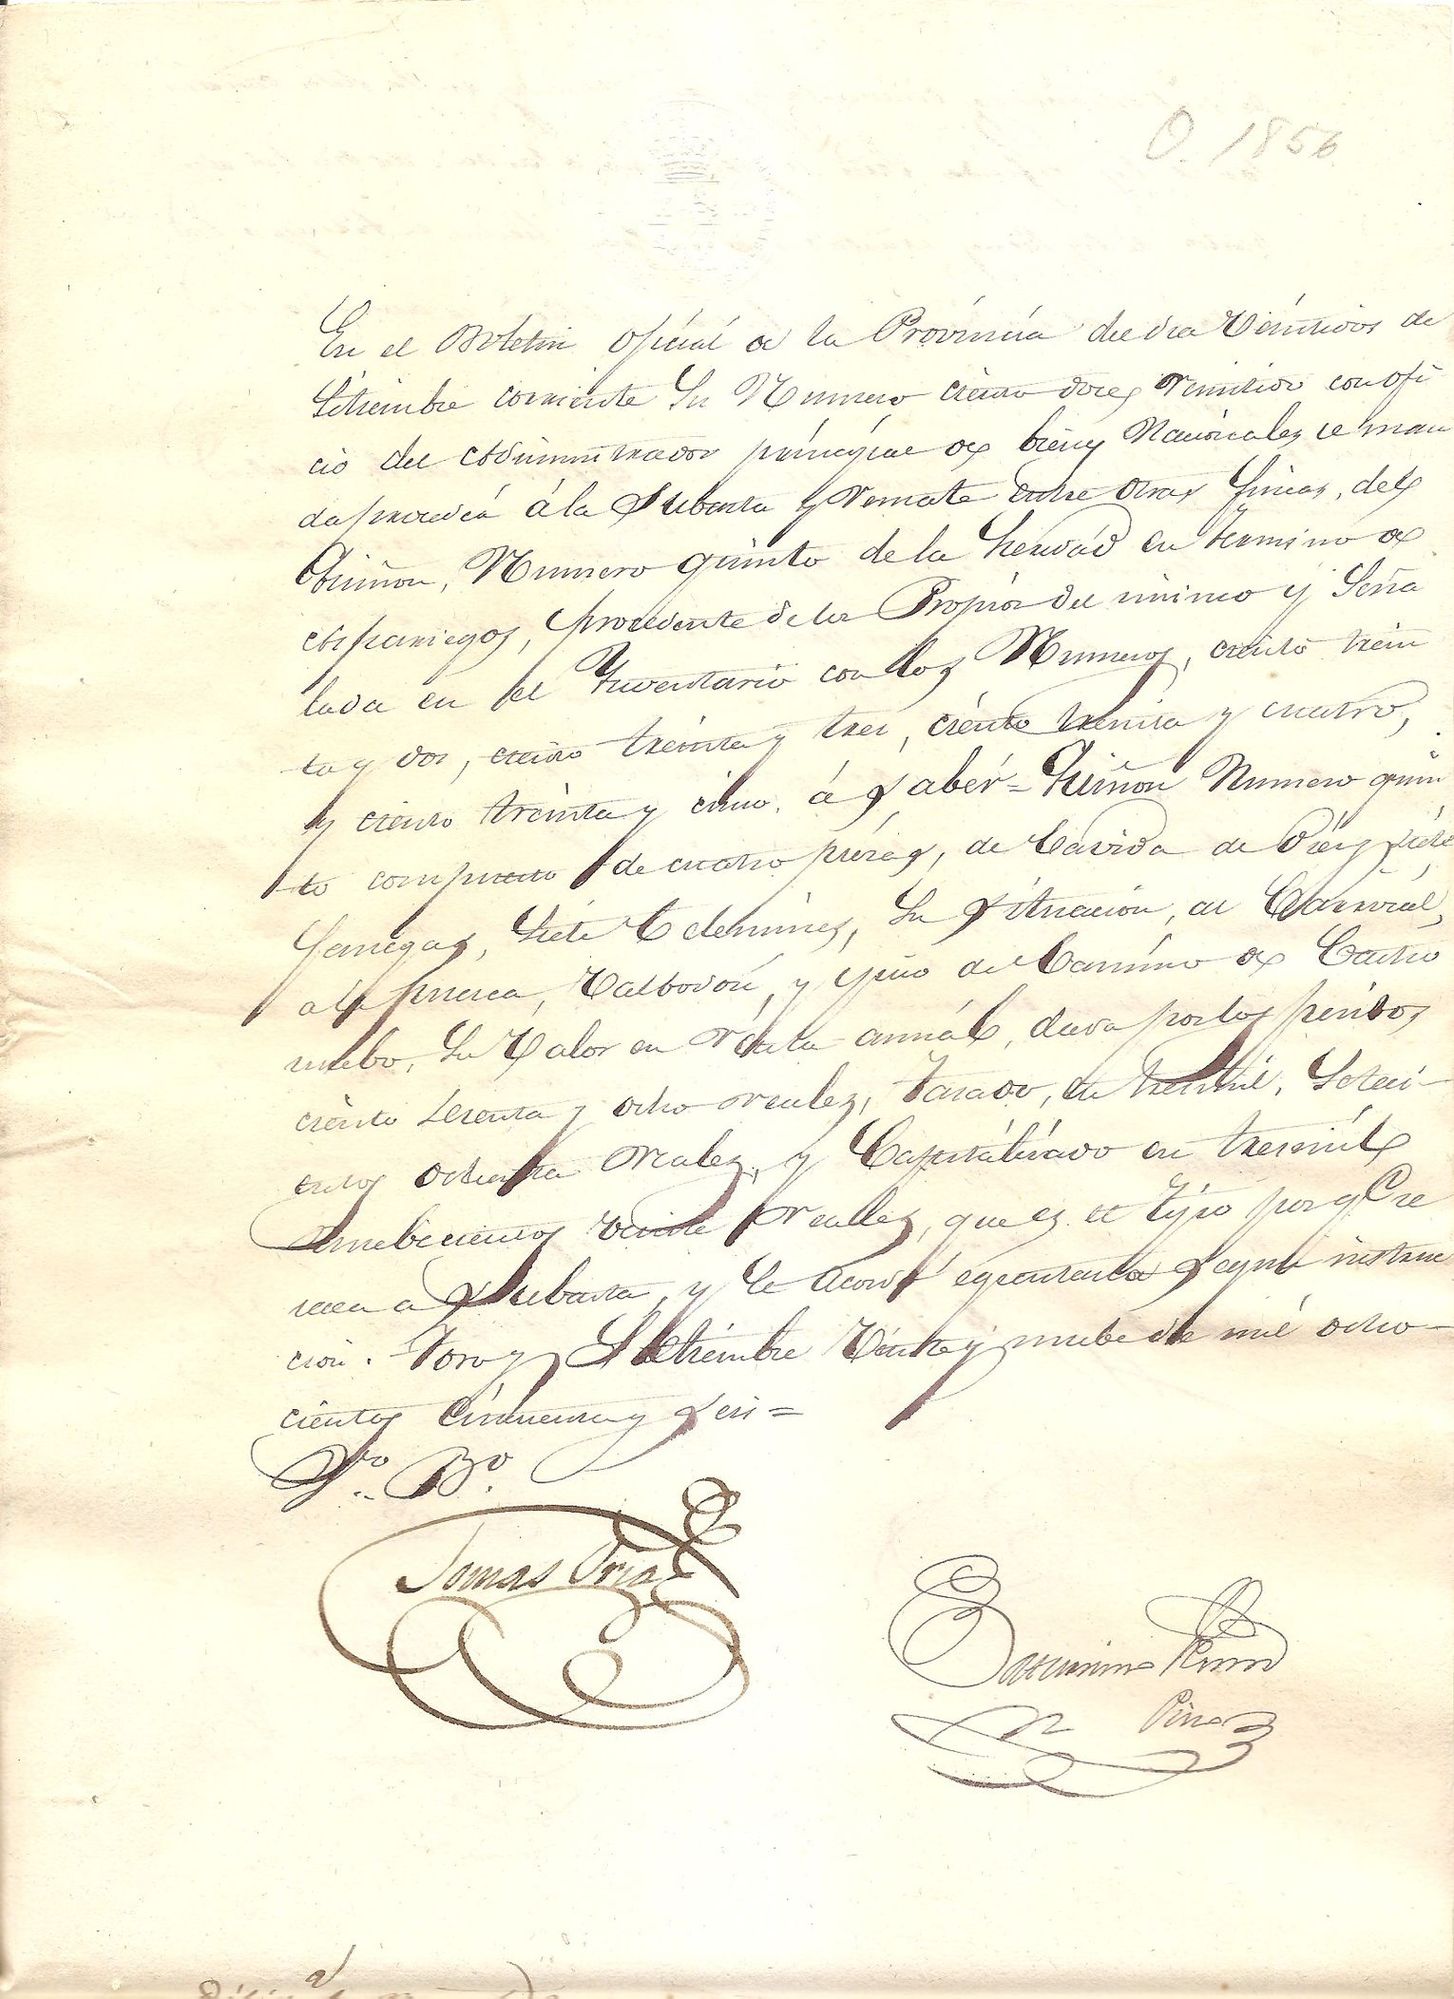 O. 1856
En el Boletin oficial de la Provincia del dia Veintidos de
Setiembre corriente Su Numero ciento doce, remitido con ofi
cio del Administrador principal de bienes Nacionales se man
da proceda á la Subasta y Remate entre otras fincas, del
Quiñon, Numero quinto de la heredad en termino de
Aspariegos, procedente de los Propios del mismo y Seña
lada en el Inventario con los Numeros, ciento trein
ta y dos, ciento treinta y tres, ciento treinta y cuatro,
y ciento treinta y cinco. á Saber = Quiñon Numero quin
to compuesto de cuatro piezas, de Cavida de Diez y siete
fanegas, Siete Celemines, Su Situacion, al Carrival,
a la huerca, Valbodon, y Camino de Castro
nuebo, Su Valor en Renta annál, dava por los peritos
ciento Sesenta y ocho reales, tasado, en tresmil, Seteci-
entos ochenta reales, y Capitalizado en tresmil
nuebecientos veinte reales, que es el tipo porque se
saca a Subasta, y Se Acordó egecutarla Segun instruc
cion. Toro y Setiembre Veinte y nuebe de mil ocho-
cientos Cincuenta y Seis =
Vº. Bº.
Tomas Oria
Saturnino
Pino